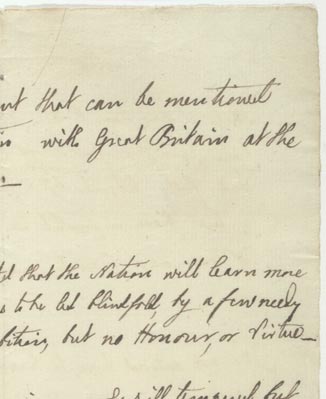 that can be mentioned
with Great Britain at the
that the Nation will learn more
to be led blindfold, by a few needy
but no Honour, or Virtue_
ill tempered but